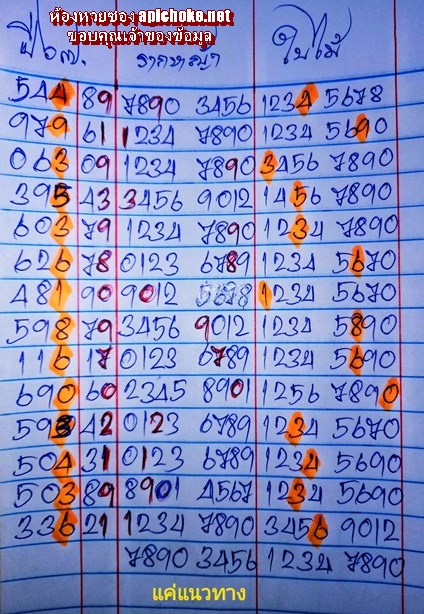 ห้องหวยซอง apichoke.net
ขอบคุณเจ้าของข้อมูล
ปี๖๗. รากหญ้า ใบไม้
544 89 7890 3456 1234 5678
979 61 1234 7890 1234 5690
063 09 1234 7890 3456 7890
395 43 3456 9012 1456 7890
603 79 1234 7890 1234 7890
626 78 0123 6789 1234 5670
481 90 9012 5678 1234 5670
598 79 3456 9012 1234 5890
116 17 0123 6789 1234 5690
690 60 2345 8901 1256 7890
593 42 0123 6789 1234 5670
504 31 0123 6789 1234 5690
503 89 8901 4567 1234 5690
336 21 1234 7890 3456 9012
7890 3456 1234 7890
แค่แนวทาง